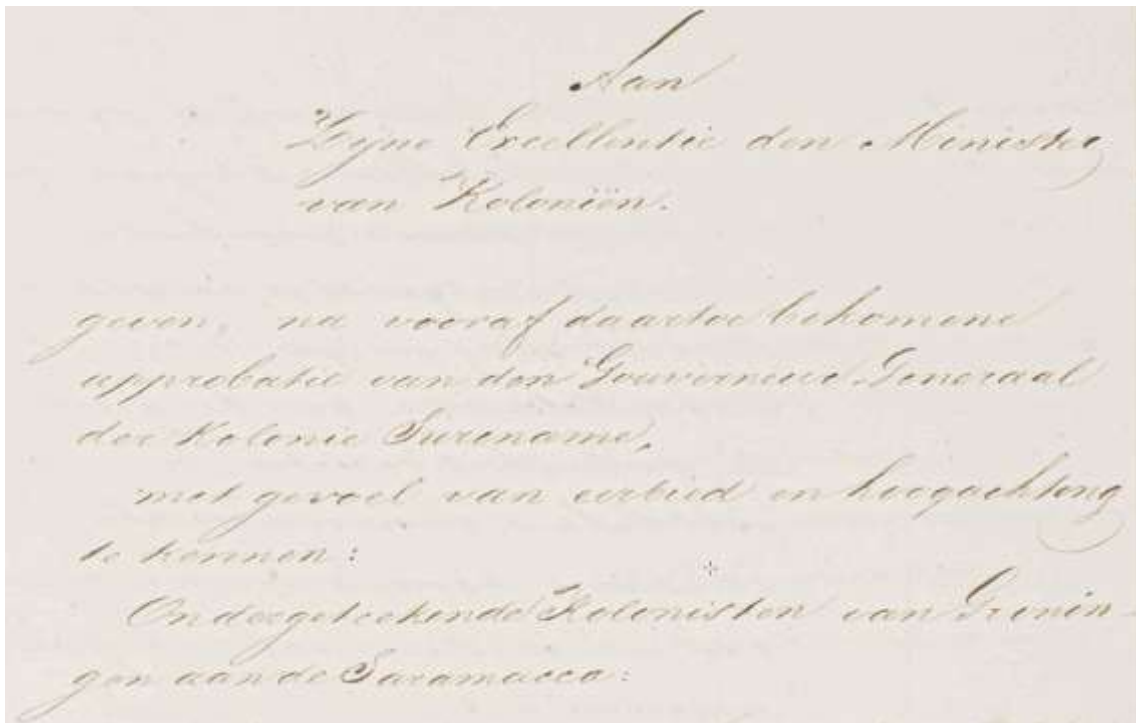 Aan
Zijne Excellentie den Minister
van Koloniën.
geven, na vooraf daartoe bekomene
approbatie van den Gouverneur Generaal
der Kolonie Suriname,
met gevoel van eerbied en hoogachting
te kennen:
Ondergeteekende Kolonisten van Gronin-
gen aan de Saramacca: